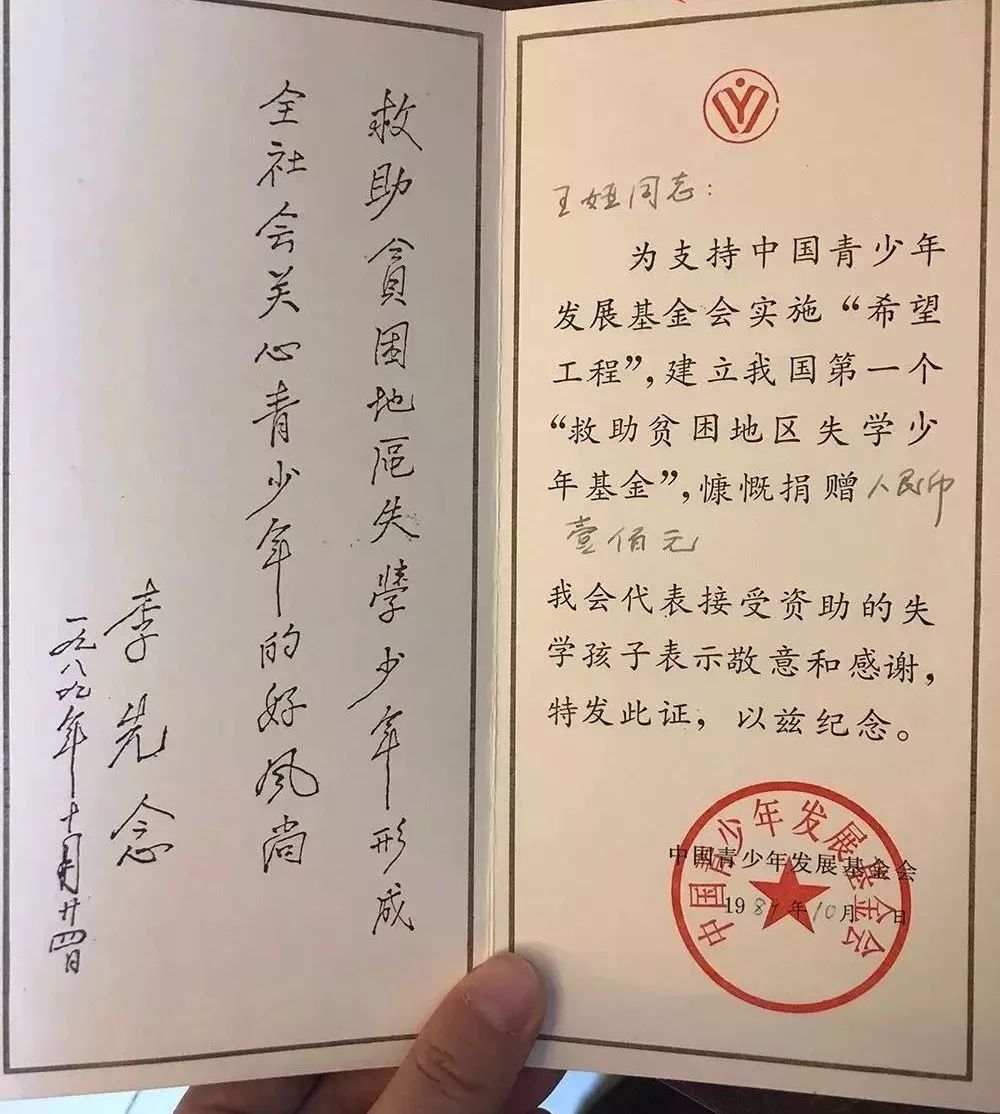 救助貧困地区失學少年形成
全社会关心青少年的好风尚
李先念
一九八九年十月廿四日
王妞同志：
为支持中国青少年
发展基金会实施“希望
工程”，建立我国第一个
“救助贫困地区失学少
年基金”，慷慨捐赠人民币
壹佰元
我会代表接受资助的失
学孩子表示敬意和感谢，
特发此证，以兹纪念。
中国青少年发展基金会
1989年10月 日
中国青少年发展基金会